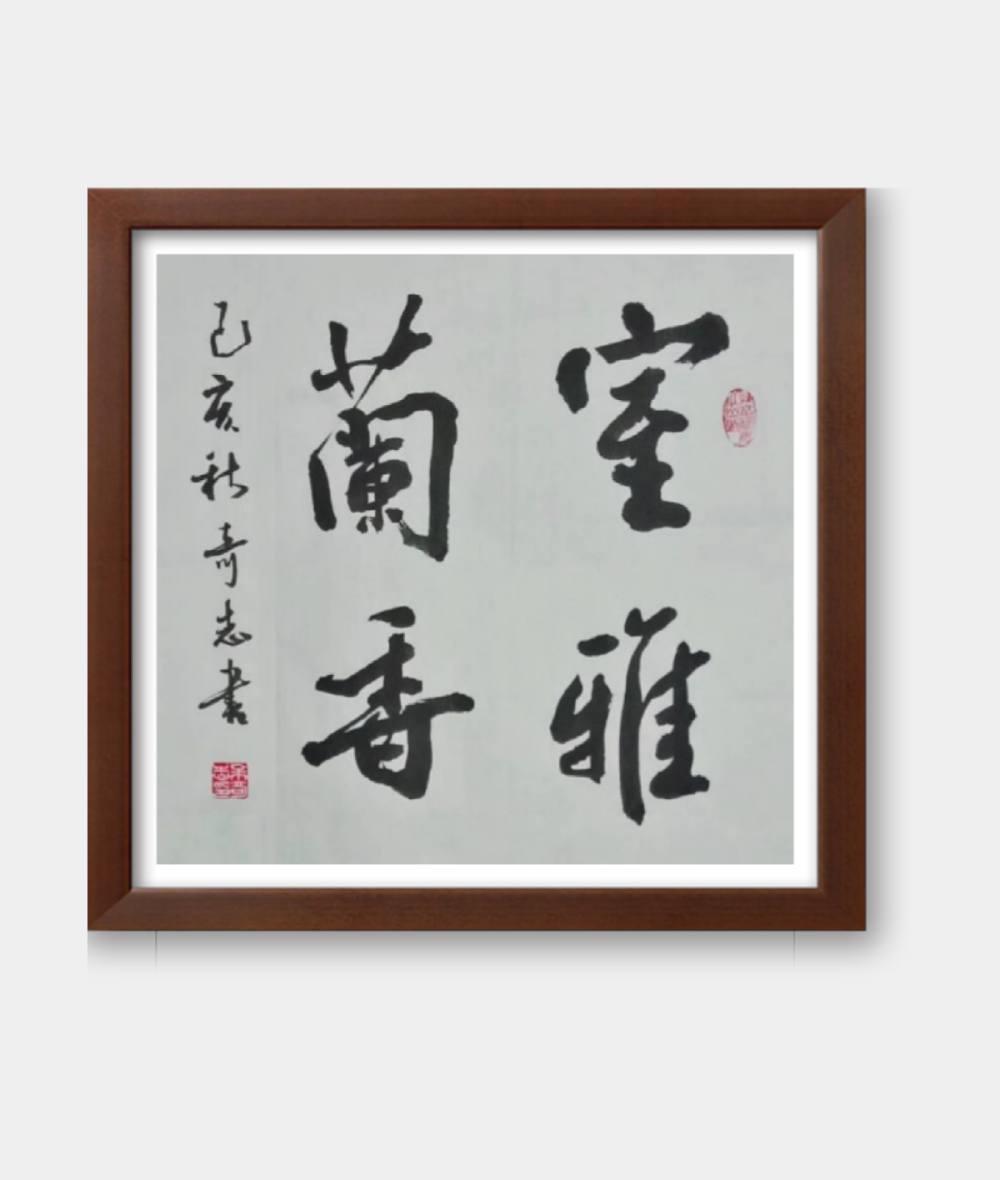 室雅
蘭香
己亥秋奇志書